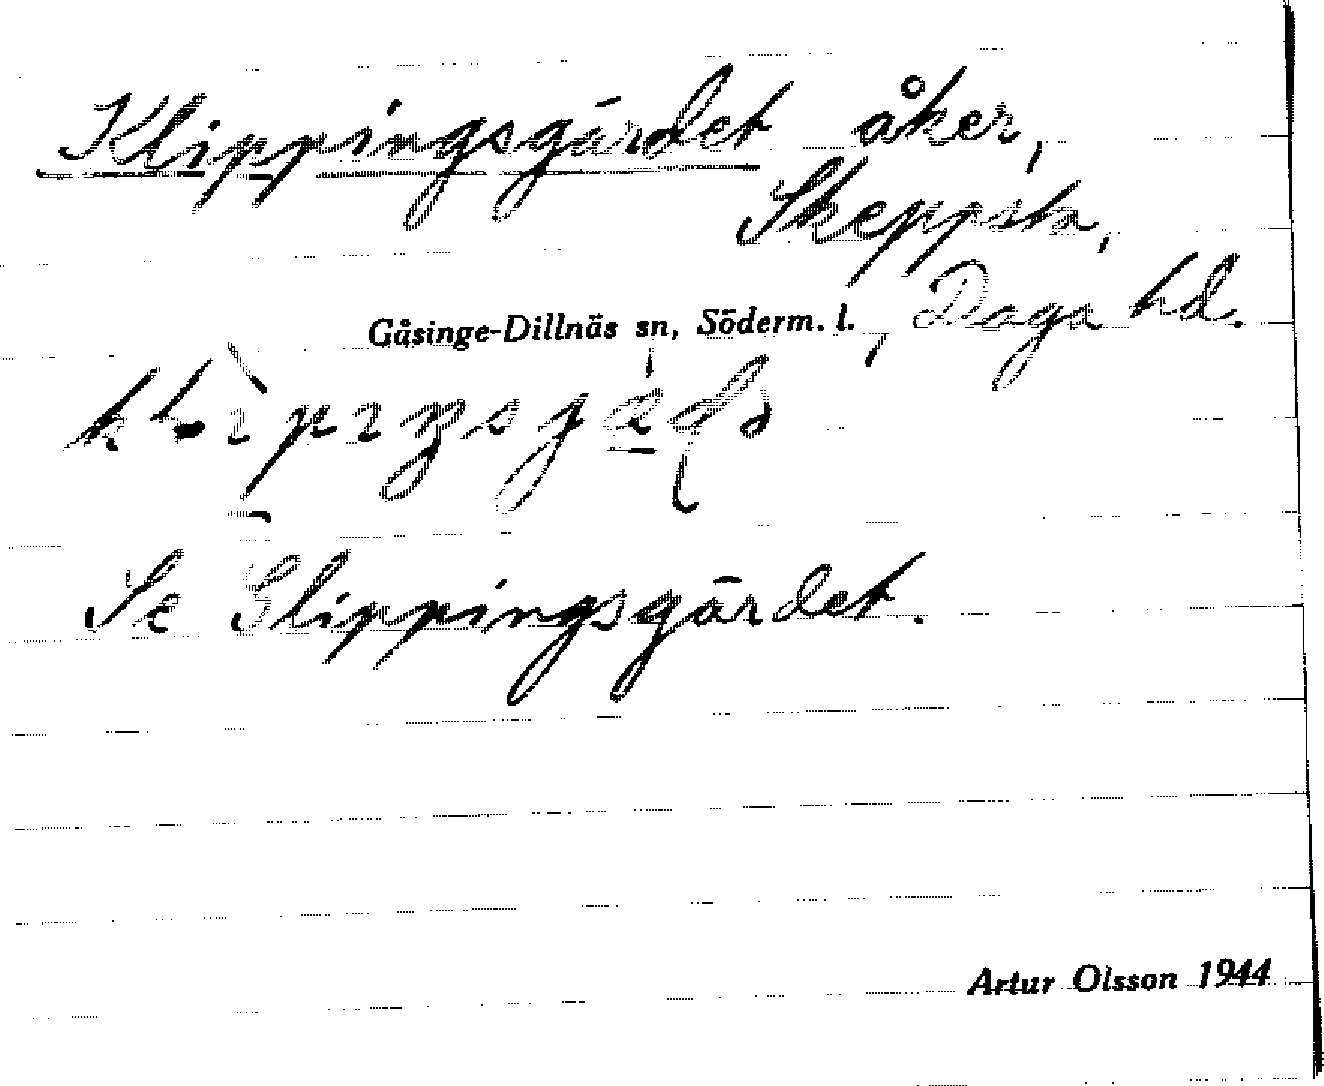 Klippingsgärdet åker,
Skeppsta,
Gåsinge-Dillnäs sn, Söderm. l., Daga hd.
Se Slippingsgärdet.
Artur Olsson 1944